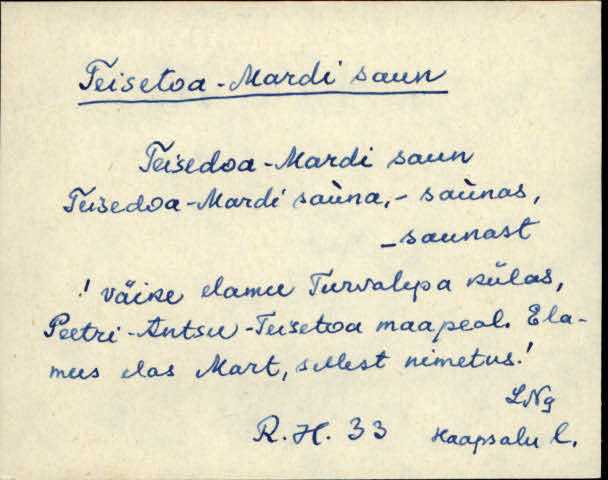 Teisetoa-Mardi saun
Teisedoa-Mardi saun
Teisedoa-Mardi saùna,- saùnas,
-saunast
! väike elamu Turvalepa külas,
Peetri-Antsu-Teisetoa maapeal. Ela-
mus elas Mart, sellest nimetus!
LNg
R.H. 33 Haapsalu l.